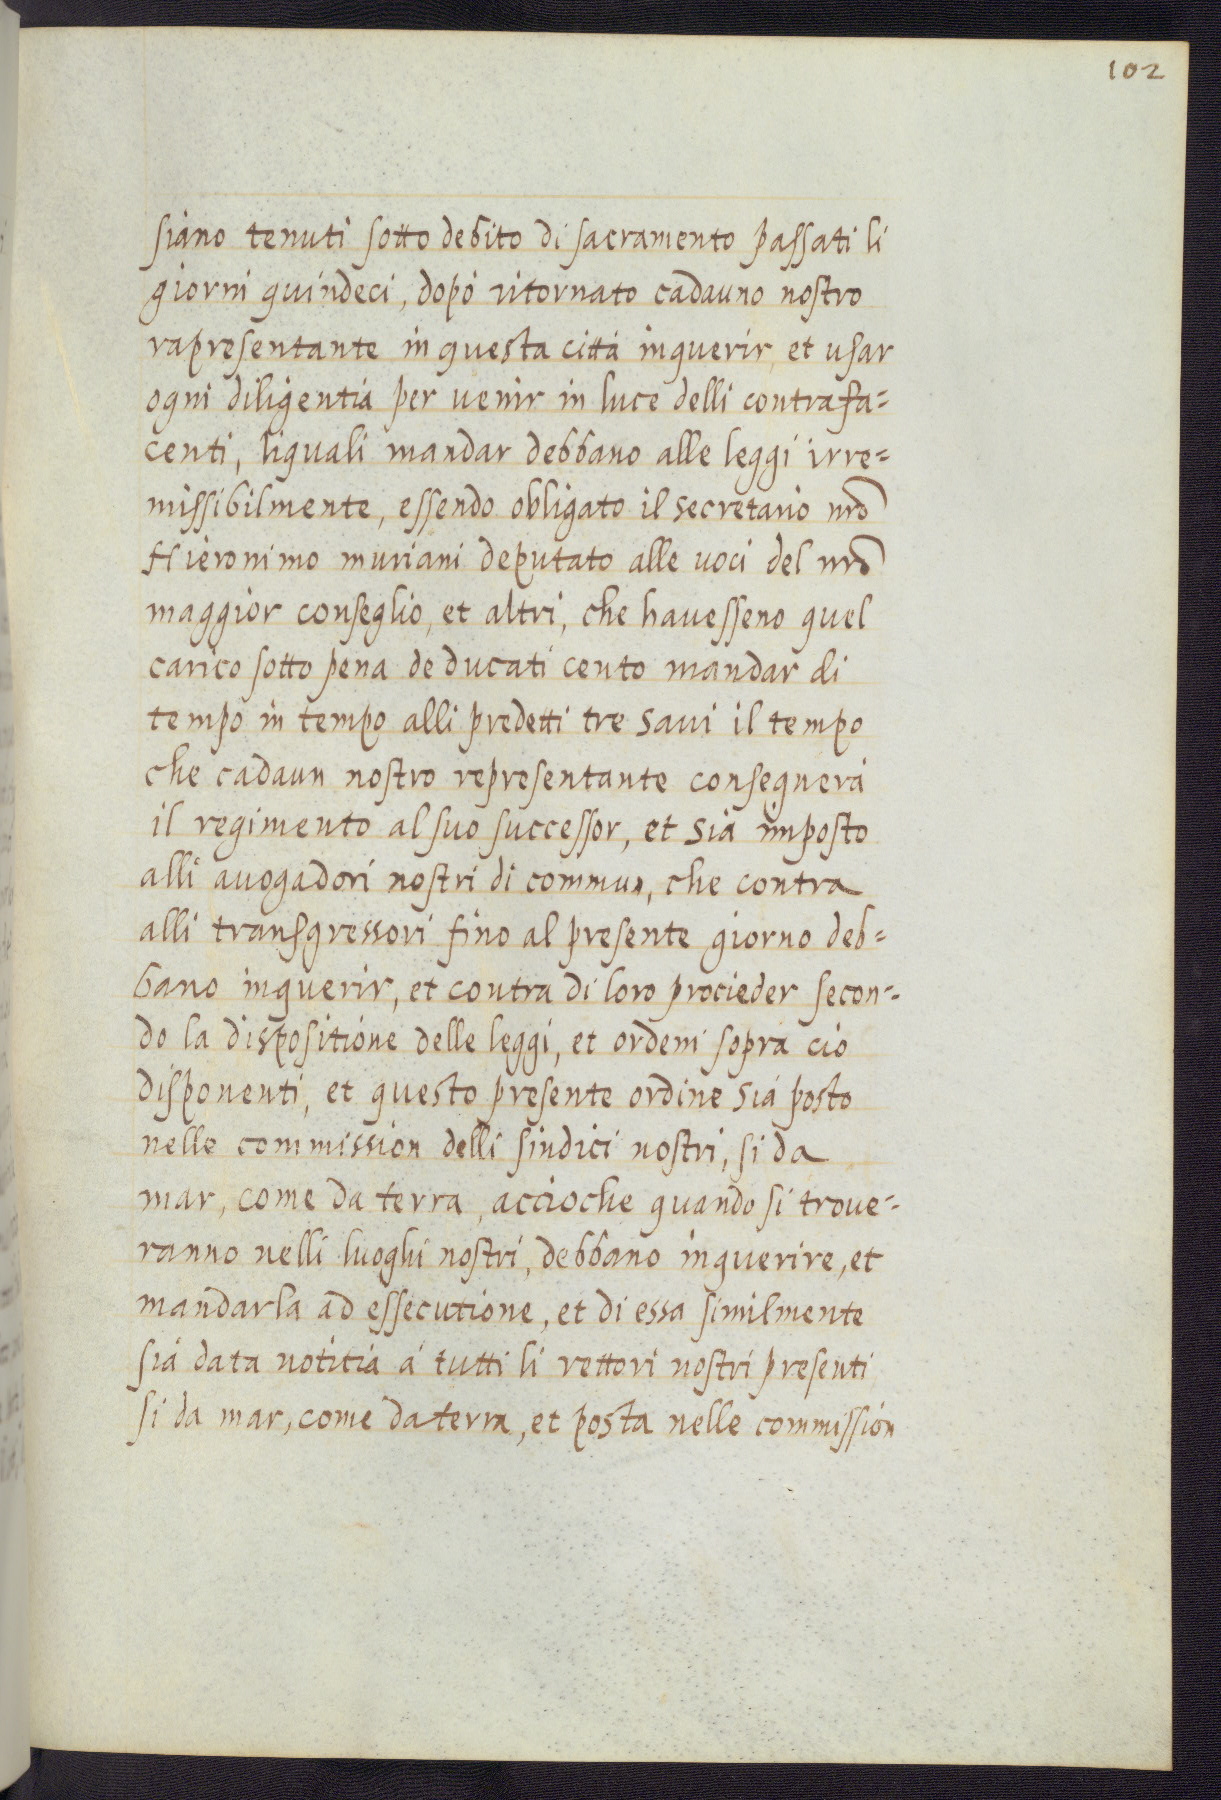 102
siano tenuti sotto debito di sacramento passati li
giorni quindeci, dopò ritornato cadauno nostro
rapresentante in questa città inquerir, et usar
ogni diligentia per uenir in luce delli contrafa=
centi, liquali mandar debbano alle leggi irre=
missibilmente, essendo obligato il secretario nrõ
Hieronimo muriani deputato alle uoci del nrõ
maggior conseglio, et altri, che hauesseno quel
carico sotto pena de ducati cento mandar di
tempo in tempo alli predetti tre Saui il tempo
che cadaun nostro representante consegnerà
il regimento al suo successor, et sia imposto
alli auogadori nostri di commun, che contra
alli transgressori fino al presente giorno deb=
bano inquerir, et contra di loro procieder secon=
do la dispositione delle leggi, et ordeni sopra ciò
disponenti, et questo presente ordine sia posto
nelle commission delli sindici nostri, si da
mar, come da terra, accioche quando si troue=
ranno nelli luoghi nostri, debbano inquerire, et
mandarla ad essecutione, et di essa similmente
sia data notitia à tutti li rettori nostri presenti
si da mar, come da terra, et posta nelle commission